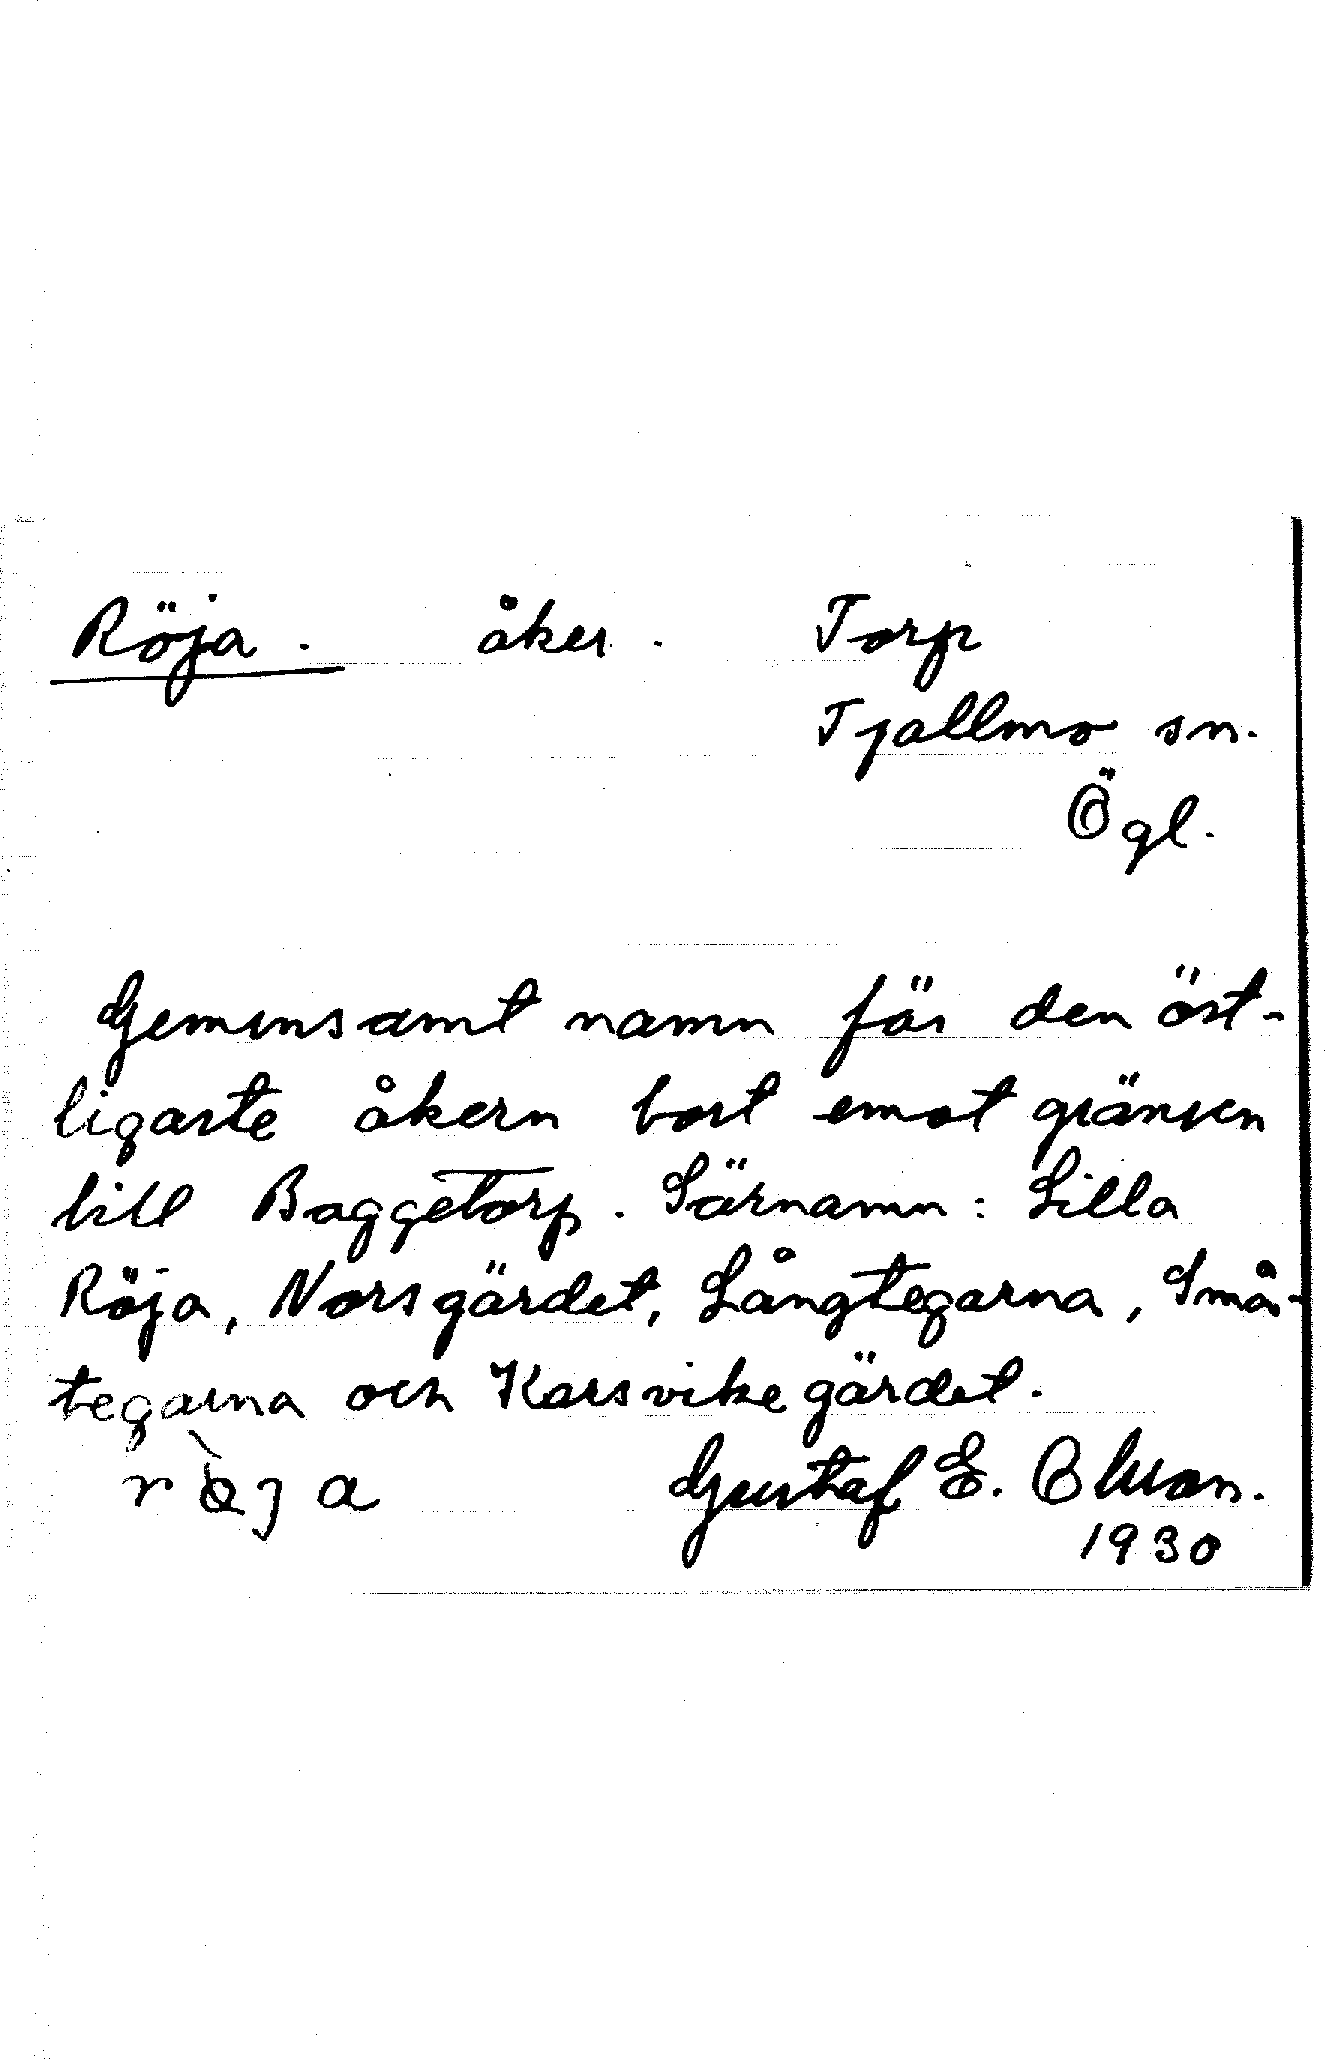 Röja. åker. Torp
Tjällmo sn.
Ögl.
Gemensamt namn för den öst-
ligaste åkern bort emot gränsen
till Baggetorp. Särnamn: Lilla
Röja, Norsgärdet, Långtegarna, Små-
tegarna och Karsvikegärdet.
Gustaf E. Olsson.
1930